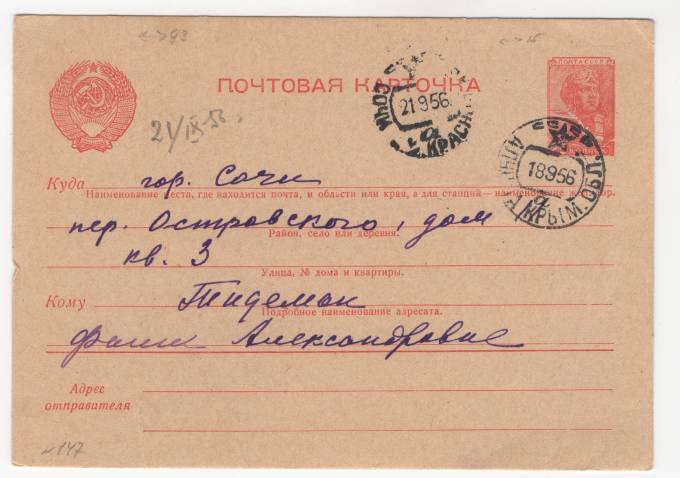 93
15
ПОЧТА СССР
ПОЧТОВАЯ КАРТОЧКА
СОЧИ
21 9 56
КРАСН
СССР
18 9 56
КРЫМ. ОБЛ.
21/IX-56.
Куда гор. Сочи
Наименование места, где находится почта, и области или края, а для станций — наименование жел. дор.
пер. Островского, дом
Район, село или деревня.
кв. 3
Улица, № дома и квартиры.
Кому Тидеман
Подробное наименование адресата.
Александровне
Адрес
отправителя
147